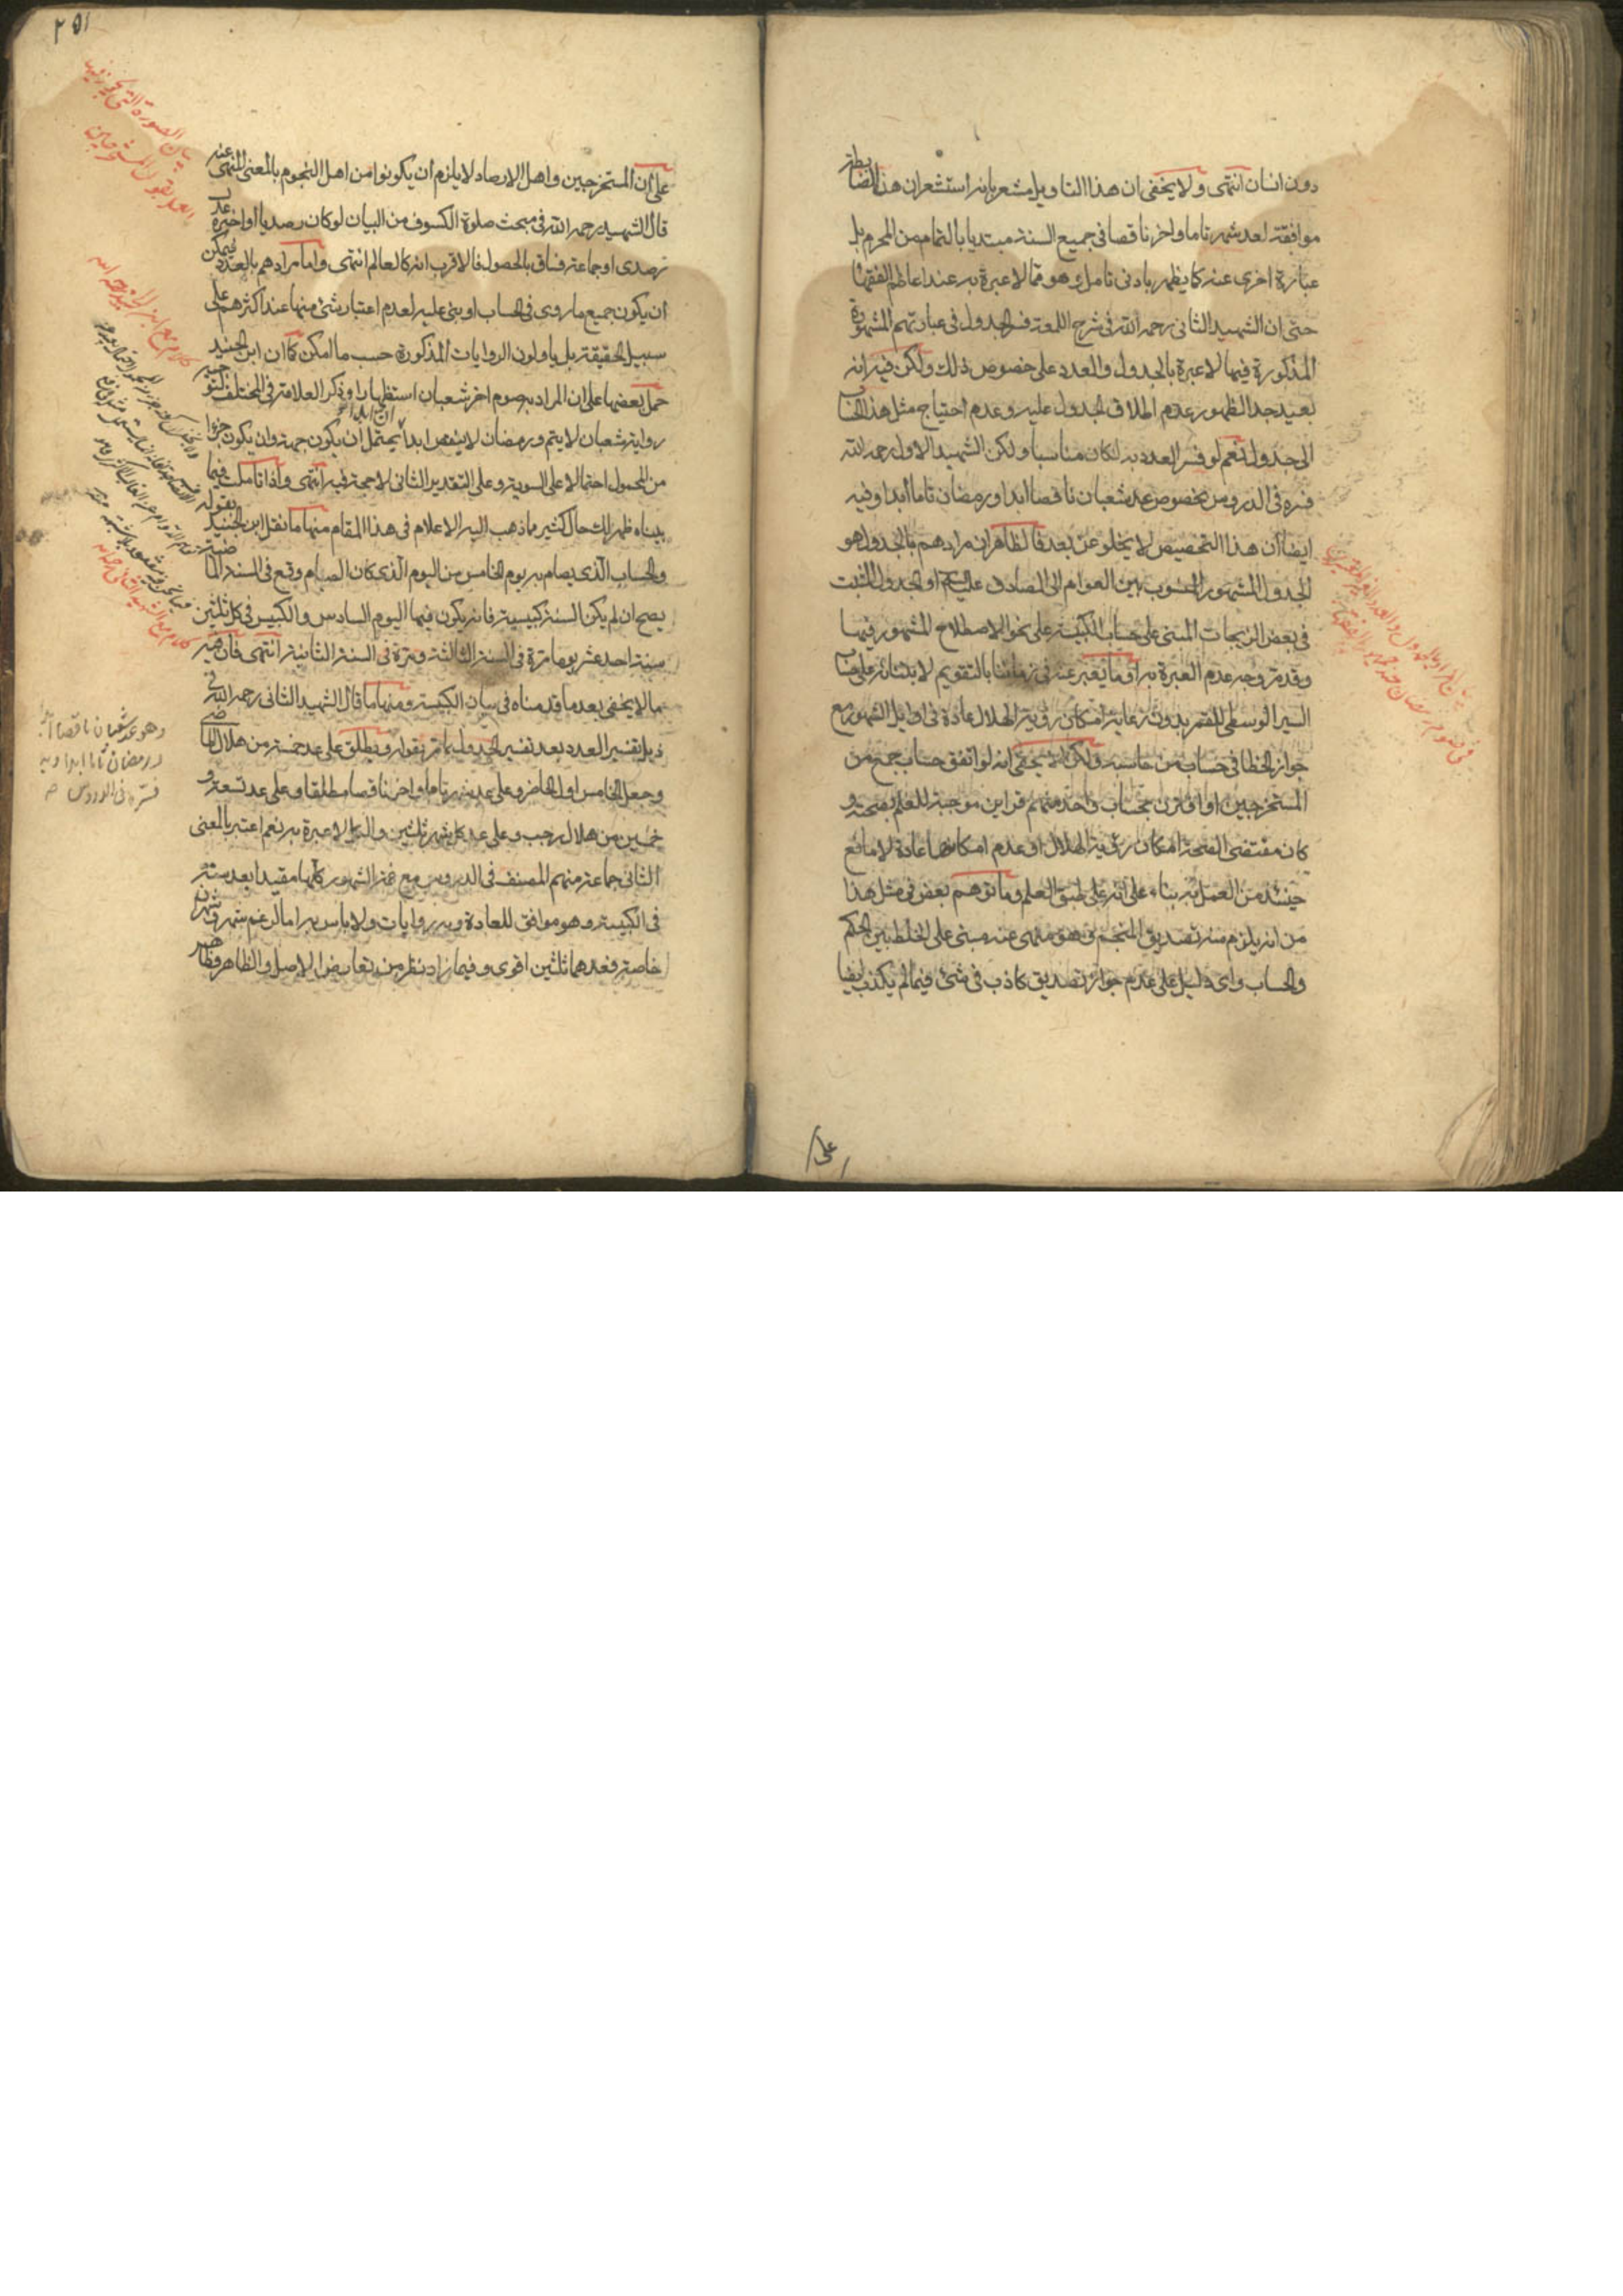 دون انسان انتهى ولا يخفى ان هذا التاويل مشعر بانه استشعر ان هذا الضابطة
موافقة لعد شهر تاما واخر ناقصا فى جميع السنة مبتديا بالتمام من المحرم بل
عبارة اخرى عنه كما يظهر بادنى تامل وهو مما لا عبرة به عند اعاظم الفقهاء
حتى ان الشهيد الثانى رحمه الله فى شرح اللمعة فسر الجدول فى عبارتهم المشهورة
المذكورة فيها لا عبرة بالجدول والعدد على خصوص ذلك ولكن فيه انه
بعيد جدا لظهور عدم اطلاق الجدول عليه وعدم احتياج مثل هذا الحساب
الى جدول نعم لو فسر العدد به لكان مناسبا ولكن الشهيد الاول رحمه الله
فسره فى الدروس بخصوص عد شعبان ناقصا ابدا ورمضان تاما ابدا وفيه
ايضا ان هذا التخصيص لا يخلو عن بعد فالظاهر ان مرادهم بالجدول هو
الجدول المشهور المنسوب بين العوام الى الصادق عليه السلم او الجدول المثبت
فى بعض الزيجات المبنى على حساب الكبيسة على نحو الاصطلاح المشهور فيها
وقد مر وجه عدم العبرة به اما ما يعبر عنه فى زماننا بالتقويم لابتنائه على حساب
السير الوسطى للقمر بدون رعاية امكان رؤية الهلال عادة فى اوايل الشهور مع
جواز الخطا فى حساب من حاسبه ولكن لا يخفى انه لو اتفق حساب جمع من
المستخرجين او اقترن بحساب واحد منهم قراين موجبة للعلم بصحته و
كان مقتضى الصحة امكان رؤية الهلال او عدم امكانها عادة لا مانع
حينئذ من العمل به بناء على انه على طبق العلم وما توهم بعض فى مثل هذا
من انه يلزم منه تصديق المنجم وهو منهى عنه مبنى على الخلط بين الحكم
والحساب واى دليل على عدم جواز تصديق كاذب فى شئ فيما لم يكذب ايضا
على
٢٥١
على ان المستخرجين واهل الارصاد لا يلزم ان يكونوا من اهل النجوم بالمعنى المنهى عنه
قال الشهيد رحمه الله فى مبحث صلوة الكسوف من البيان لو كان رصديا او اخبره عدل
رصدى او جماعة فساق بالحصول فالاقرب انه كالعالم انتهى واما مرادهم بالعدد فيمكن
ان يكون جميع ما روى فى الحساب او بنى عليه لعدم اعتبار شئ منها عند اكثرهم على
سبيل الحقيقة بل ياولون الروايات المذكورة حسب ما امكن كما ان ابن الجنيد
حمل بعضها على ان المراد به صوم اخر شعبان استظهارا وذكر العلامة فى المختلف
رواية شعبان لا يتم ورمضان لا ينقص ابدا يحتمل ان يكون جهة وان يكون جزءا
من المحمول احتمالا على السوية وعلى التقدير الثانى لا حجة فيه انتهى واذا تاملت فيما
بيناه ظهر لك حال كثير مما ذهب اليه الاعلام فى هذا المقام منها ما نقل ابن الجنيد بقوله
والحساب الذى يصام به يوم الخامس من اليوم الذى كان الصيام وقع فى السنة الماضية
يصح ان لم يكن السنة كبيسة فانه يكون فيها اليوم السادس والكبيس فى كل ثلثين
سنة احد عشر يوما مرة فى السنة الثالثة ومرة فى السنة الثانية انتهى فان فيه
ما لا يخفى بعد ما قدمناه فى بيان الكبيسة ومنها ما قال الشهيد الثانى رحمه الله فى
ذيل تفسير العدد بعد تفسير الجدول بما مر بقوله ويطلق على عد خمسة من هلال الماضى
وجعل الخامس اول الحاضر وعلى عد شهر تاما واخر ناقصا مطلقا وعلى عد تسعة و
خمسين من هلال رجب وعلى عد كل شهر ثلثين والكل لا عبرة به نعم اعتبره بالمعنى
الثانى جماعة منهم المصنف فى الدروس مع غمة الشهور كلها مقيدا بعد ستة
فى الكبيسة وهو موافق للعادة وبه روايات ولا باس به اما لو غم شهر وشهران
خاصة فعدهما ثلثين اقوى وفيما زاد نظر من تعارض الاصل والظاهر وظاهر
وهو عد شعبان ناقصا ابدا
ورمضان تاما ابدا وبه
فسره فى الدروس